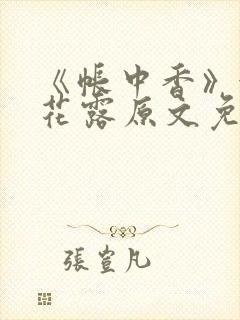 《帐中香》
花露原文免
張萱凡